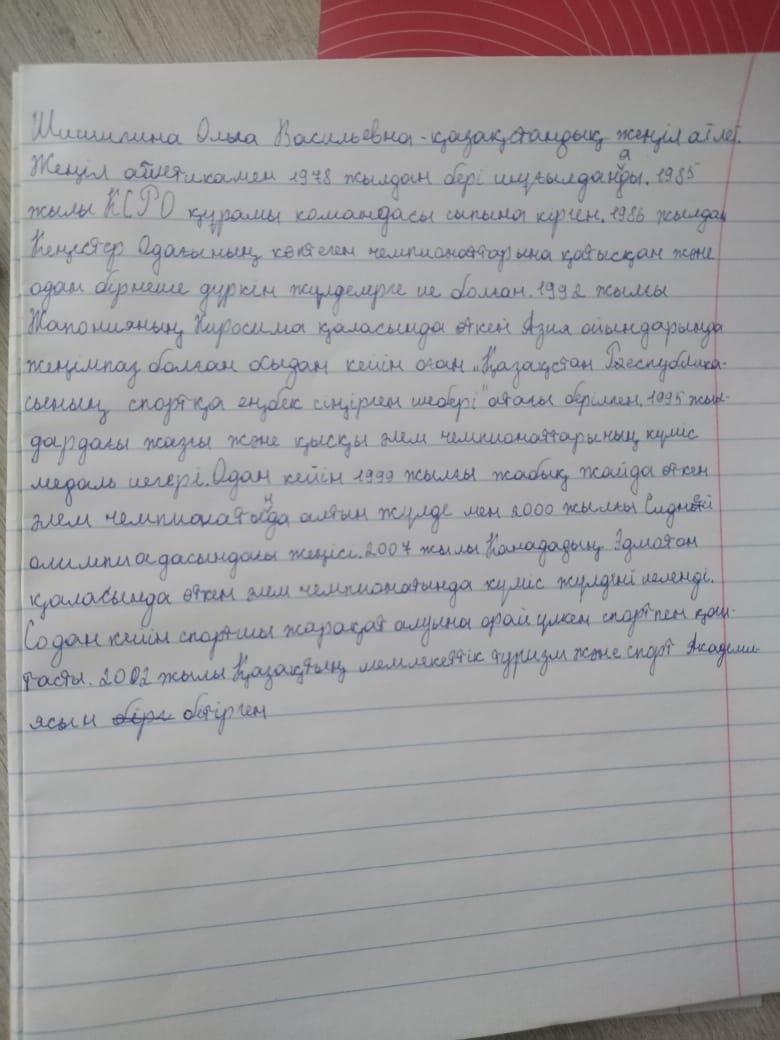 Шишигина Ольга Васильевна - қазақстандық жеңіл атлет.
Жеңіл атлетикамен 1978 жылдан бері шұғылданады. 1985
жылы КСРО құрамы командасы сапына кірген. 1986 жылдан
Кеңестер Одағының көптеген чемпионаттарына қатысқан және
одан бірнеше дүркін жүлделерге ие болған. 1992 жылғы
Жапонияның Хиросима қаласында өткен Азия ойындарында
жеңімпаз болған осыдан кейін оған „Қазақстан Республика-
сының спортқа еңбек сіңірген шебері" атағы берілген. 1995 жыл-
дардағы жазғы және қысқы әлем чемпионаттарының күміс
медаль иегері. Одан кейін 1999 жылғы жабық жайда өткен
әлем чемпионатында алтын жүлде мен 2000 жылғы Сидней
олимпиадасындағы жеңісі. 2007 жылы Канададың Эдмотон
қаласында өткен әлем чемпионатында күміс жүлдені иеленді.
Содан кейін спортшы жарақат алуына орай үлкен спортпен қош-
тасты. 2002 жылы Қазақтың мемлекеттік туризм және спорт Академи-
ясын бітірген